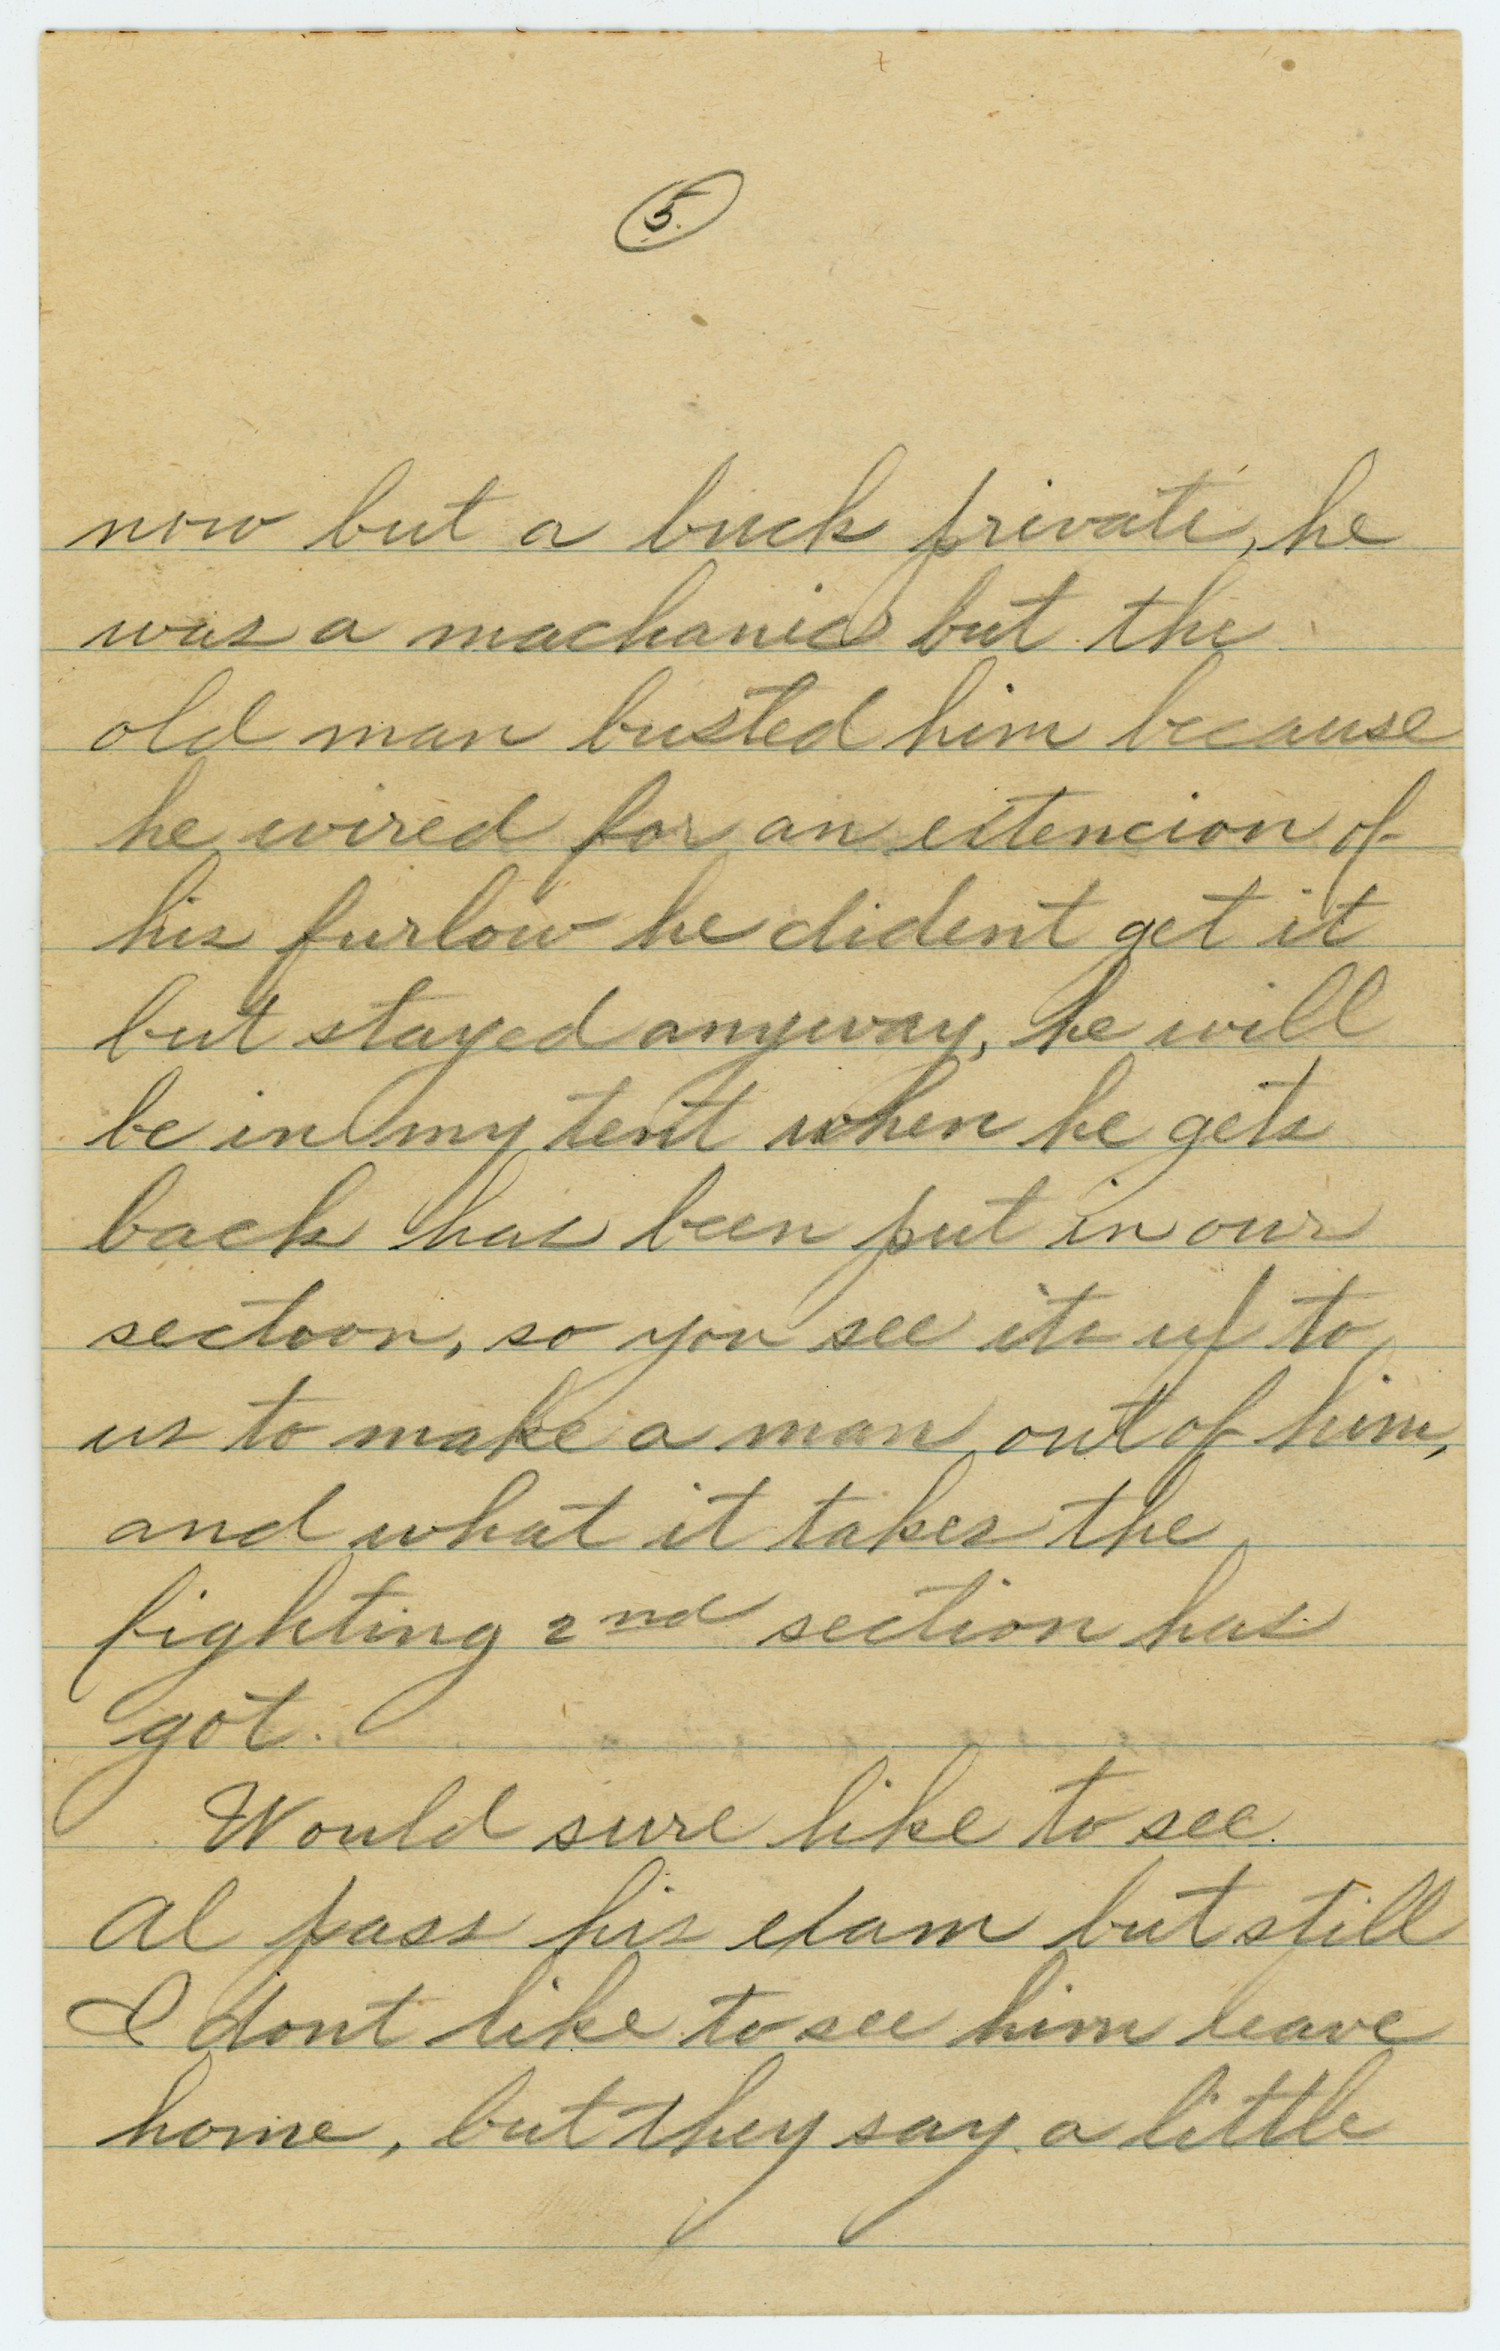 5.
now but a buck private, he
was a machanic but the
old man busted him because
he wired for an extencion of
his furlow he dident get it
but stayed anyway, he will
be in my tent when he gets
back has been put in our
sectoon, so you see its up to
us to make a man out of him,
and what it takes the
fighting 2nd section has
got.
Would sure like to see
Al pass his exam but still
I dont like to see him leave
home, but they say a little